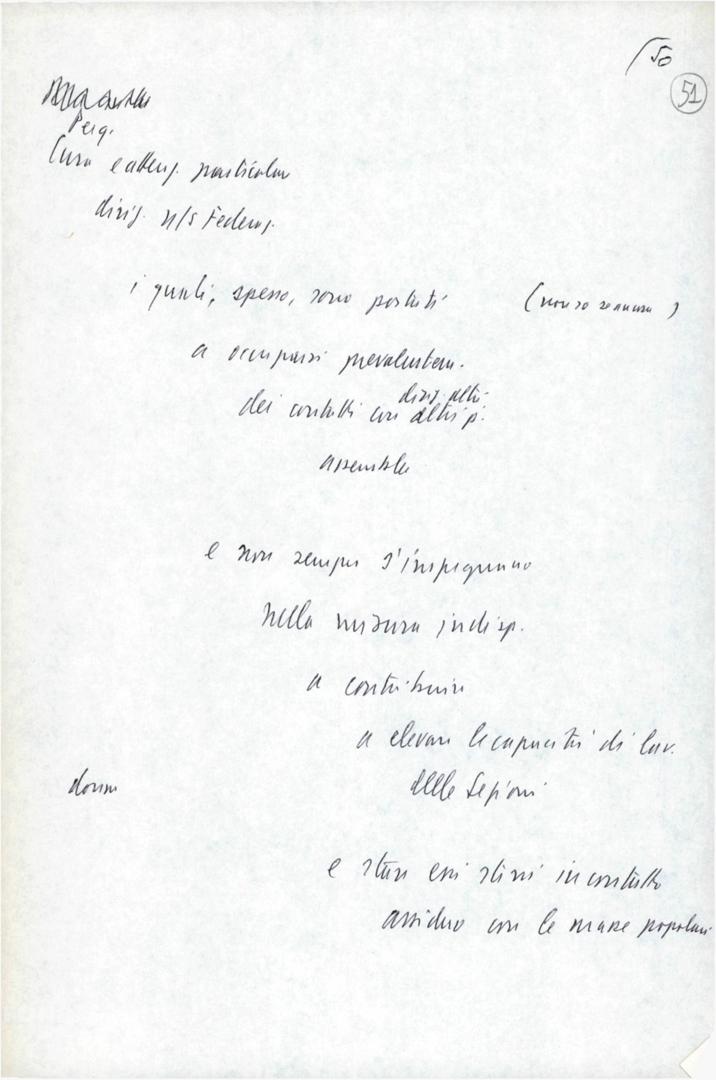 50
51
Perq.
Cura e attenz. particolar
dirig. n/s Federaz.
i quali, spesso, sono portati (non so se ancora)
a occuparsi prevalentem.
dirig. altri
dei contatti con altri p.
assemblee
e non sempre s'impegnano
nella misura indisp.
a contribuire
a elevare le capacità di lav.
donne delle Sezioni
e stare essi stessi in contatto
assiduo con le masse popolari